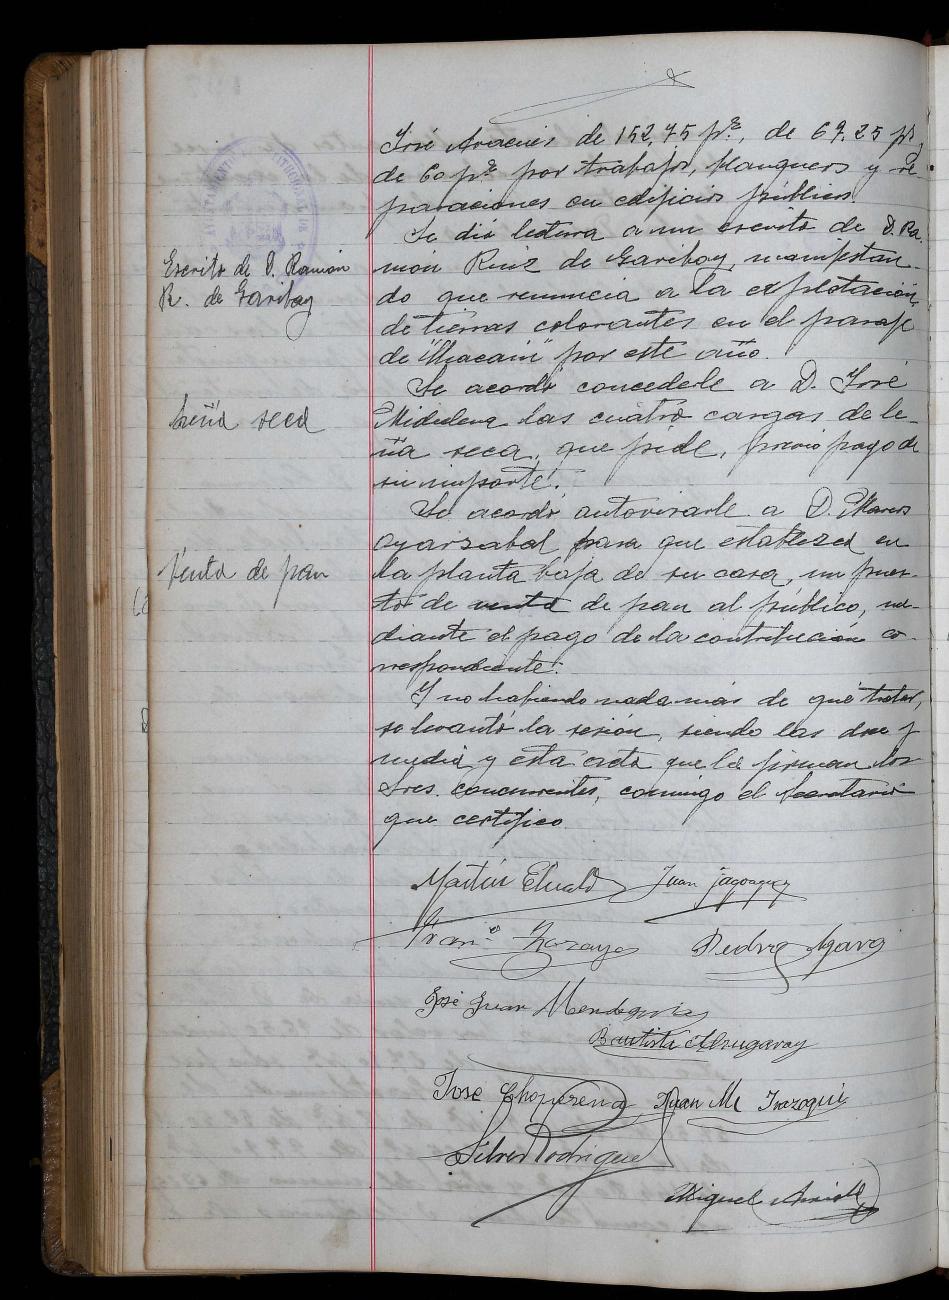 José de 152,75 pts, de 67,25 pts,
de 60 pts por trabajos, blanqueos y re-
paraciones en edificios públicos.
Se dió lectura a un escrito de D. Ra-
Escrito de D. Ramón
R. de Garibay
món Ruiz de Garibay, manifestan-
do que renuncia a la explotación
de tierras colorantes en el paraje
de por este año.
Se acordó concederle a D. José
Leña seca
las cuatro cargas de le-
ña seca, que pide, previo pago de
su importe.
Se acordó autorizarle a D. Marcos
Oyarzabal para que establezca en
Venta de pan
la planta baja de su casa, un pues-
to de venta de pan al público, me-
diante el pago de la contribución co-
rrespondiente.
Y no habiendo nada más de que tratar,
se levantó la sesión, siendo las doce y
media y esta acta que la firman los
Sres. concurrentes, conmigo el Secretario
que certifico.
Martín Juan
Franco
Pedro
José Juan Mendeguía
Bautista
José Choperena Juan M. Irazoqui
Silver Rodriguez
Miguel